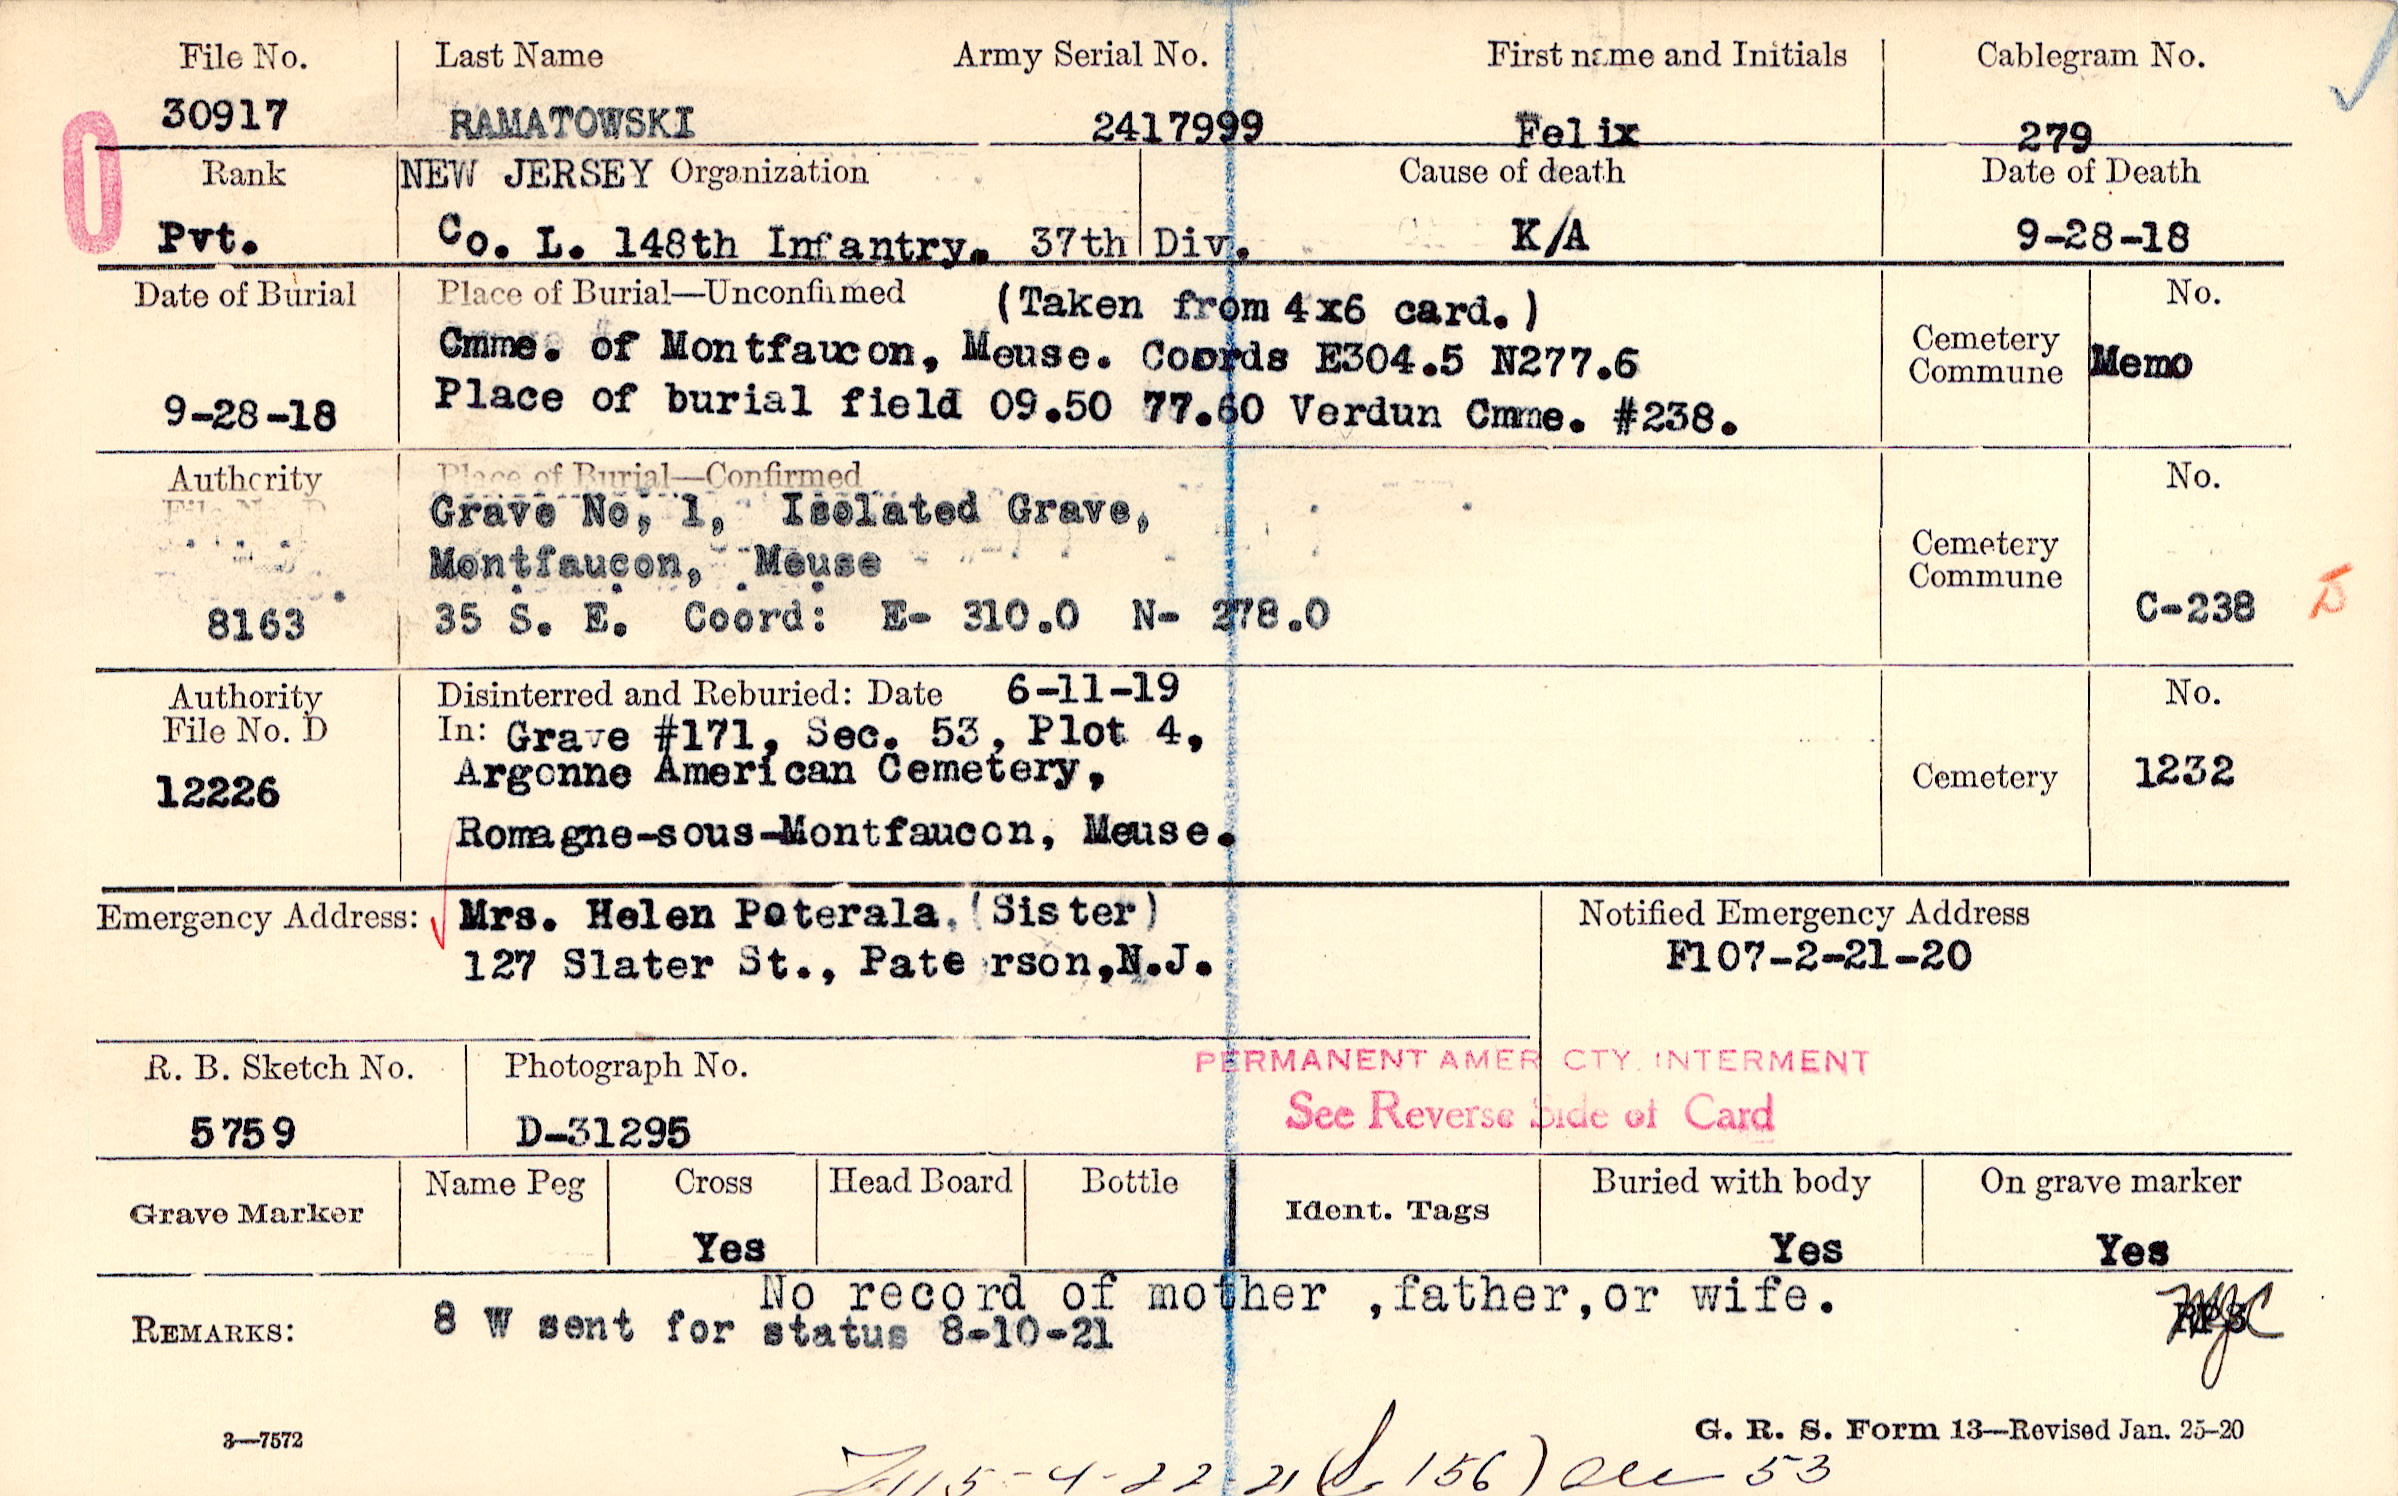 File No. Last Name Army Serial No. First name and Initials Cablegram No.
30917 RAMATOWSKI 2417999 Felix 279
Rank NEW JERSEY Organization Cause of death Date of Death
Pvt. Co. L. 148th Infantry. 37th Div. K/A 9-28-18
Date of Burial Place of Burial—Unconfirmed (Taken from 4x6 card.) No.
Cmme. of Montfaucon, Meuse. Coords E304.5 N277.6 Cemetery Commune Memo
9-28-18 Place of burial field 09.50 77.60 Verdun Cmme. #238.
Authority Place of Burial—Confirmed No.
Grave No, 1, Isolated Grave,
Montfaucon, Meuse Cemetery Commune
8163 35 S. E. Coord: E- 310.0 N- 278.0 C-238
Authority Disinterred and Reburied: Date 6-11-19 No.
File No. D In: Grave #171, Sec. 53, Plot 4,
12226 Argonne American Cemetery, Cemetery 1232
Romagne-sous-Montfaucon, Meuse.
Emergency Address: Mrs. Helen Poterala. (Sister) Notified Emergency Address
127 Slater St., Pate rson,N.J. F107-2-21-20
R. B. Sketch No. Photograph No. PERMANENT AMER CTY. INTERMENT
5759 D-31295 See Reverse Side of Card
Grave Marker Name Peg Cross Head Board Bottle Ident. Tags Buried with body On grave marker
Yes Yes Yes
No record of mother ,father,or wife.
REMARKS: 8 W sent for status 8-10-21
3—7572 G. R. S. Form 13—Revised Jan. 25-20
115-4-22-21 156) 53